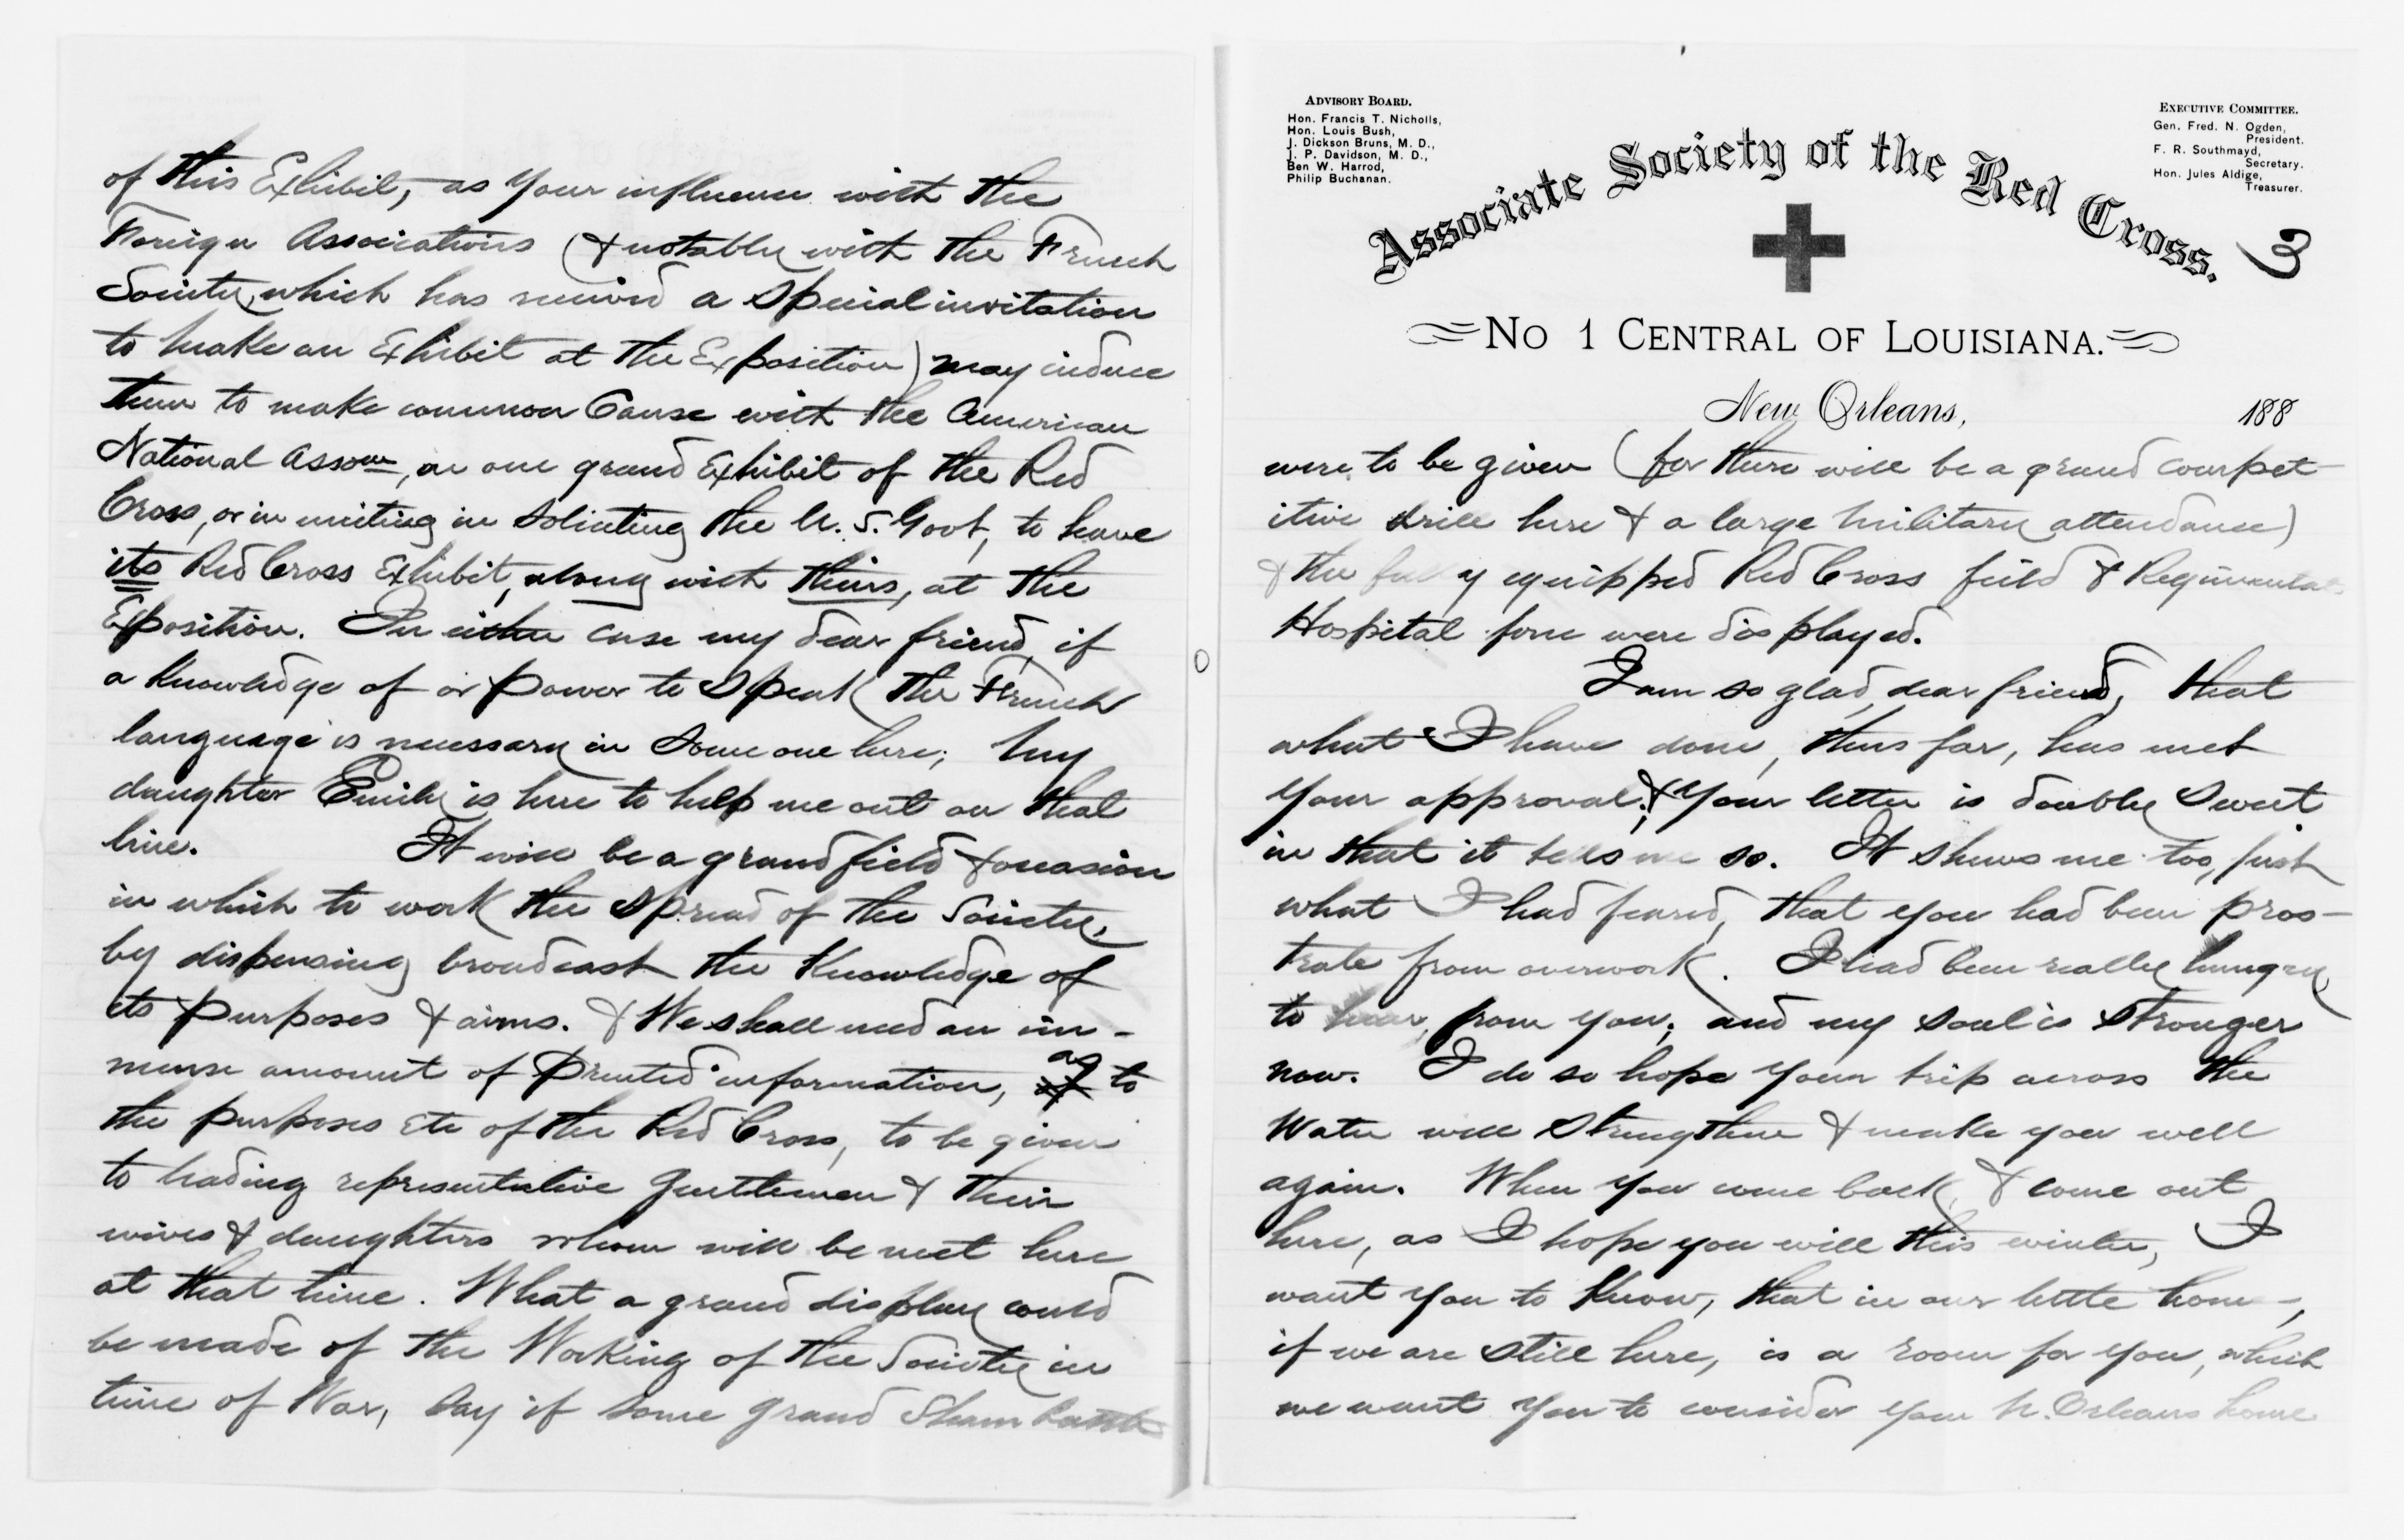 of this Exhibit, as your influence with the
Foreign Associations (& notably with the French
Society, which has received a Special invitation
to make an Exhibit at the Exposition) may induce
them to make common Cause with the American
National Assocn, in one grand Exhibit of the Red
Cross, or in uniting in Soliciting the U. S. Govt, to have
its Red Cross Exhibit, along with theirs, at the
Exposition. In either case my dear friend, if
a knowledge of or power to Speak the French
language is necessary in Some one here; my
daughter Emily is here to help me out on that
line. It will be a grand field & occasion
in which to work the Spread of the Society,
by dispensing broadcast the Knowledge of
its purposes & aims. & We shall need an im-
mense amount of printed information, as to
the purposes etc of the Red Cross, to be given
to leading representative Gentlemen & their
wives & daughters whom will be met here
at that time. What a grand display could
be made of the Working of the Society in
time of War, Say if some grand Sham battle
ADVISORY BOARD.
Hon. Francis T. Nicholls,
Hon. Louis Bush,
J. Dickson Bruns, M. D.,
J. P. Davidson, M. D.,
Ben W. Harrod,
Philip Buchanan.
EXECUTIVE COMMITTEE.
Gen. Fred. N. Ogden,
President.
F. R. Southmayd,
Secretary.
Hon. Jules Aldige,
Treasurer.
Associate Society of the Red Cross.
3
No 1 CENTRAL OF LOUISIANA.
New Orleans, 188
were to be given (for there will be a grand compet-
itive drill here & a large military attendance)
& the fully equipped Red Cross field & Regimental
Hospital force were displayed.
I am so glad, dear friend, that
what I have done, thus far, has met
your approval; & your letter is doubly Sweet
in that it tells me so. It shews me too, just
what I had feared, that you had been pros-
trate from overwork. I had been really hungry
to hear from you; and my soul is stronger
now. I do so hope your trip across the
Water will Strengthen & make you well
again. When you come back, & come out
here, as I hope you will this winter, I
want you to Know, that in our little home,
if we are still here, is a room for you, which
we want you to consider your N. Orleans home